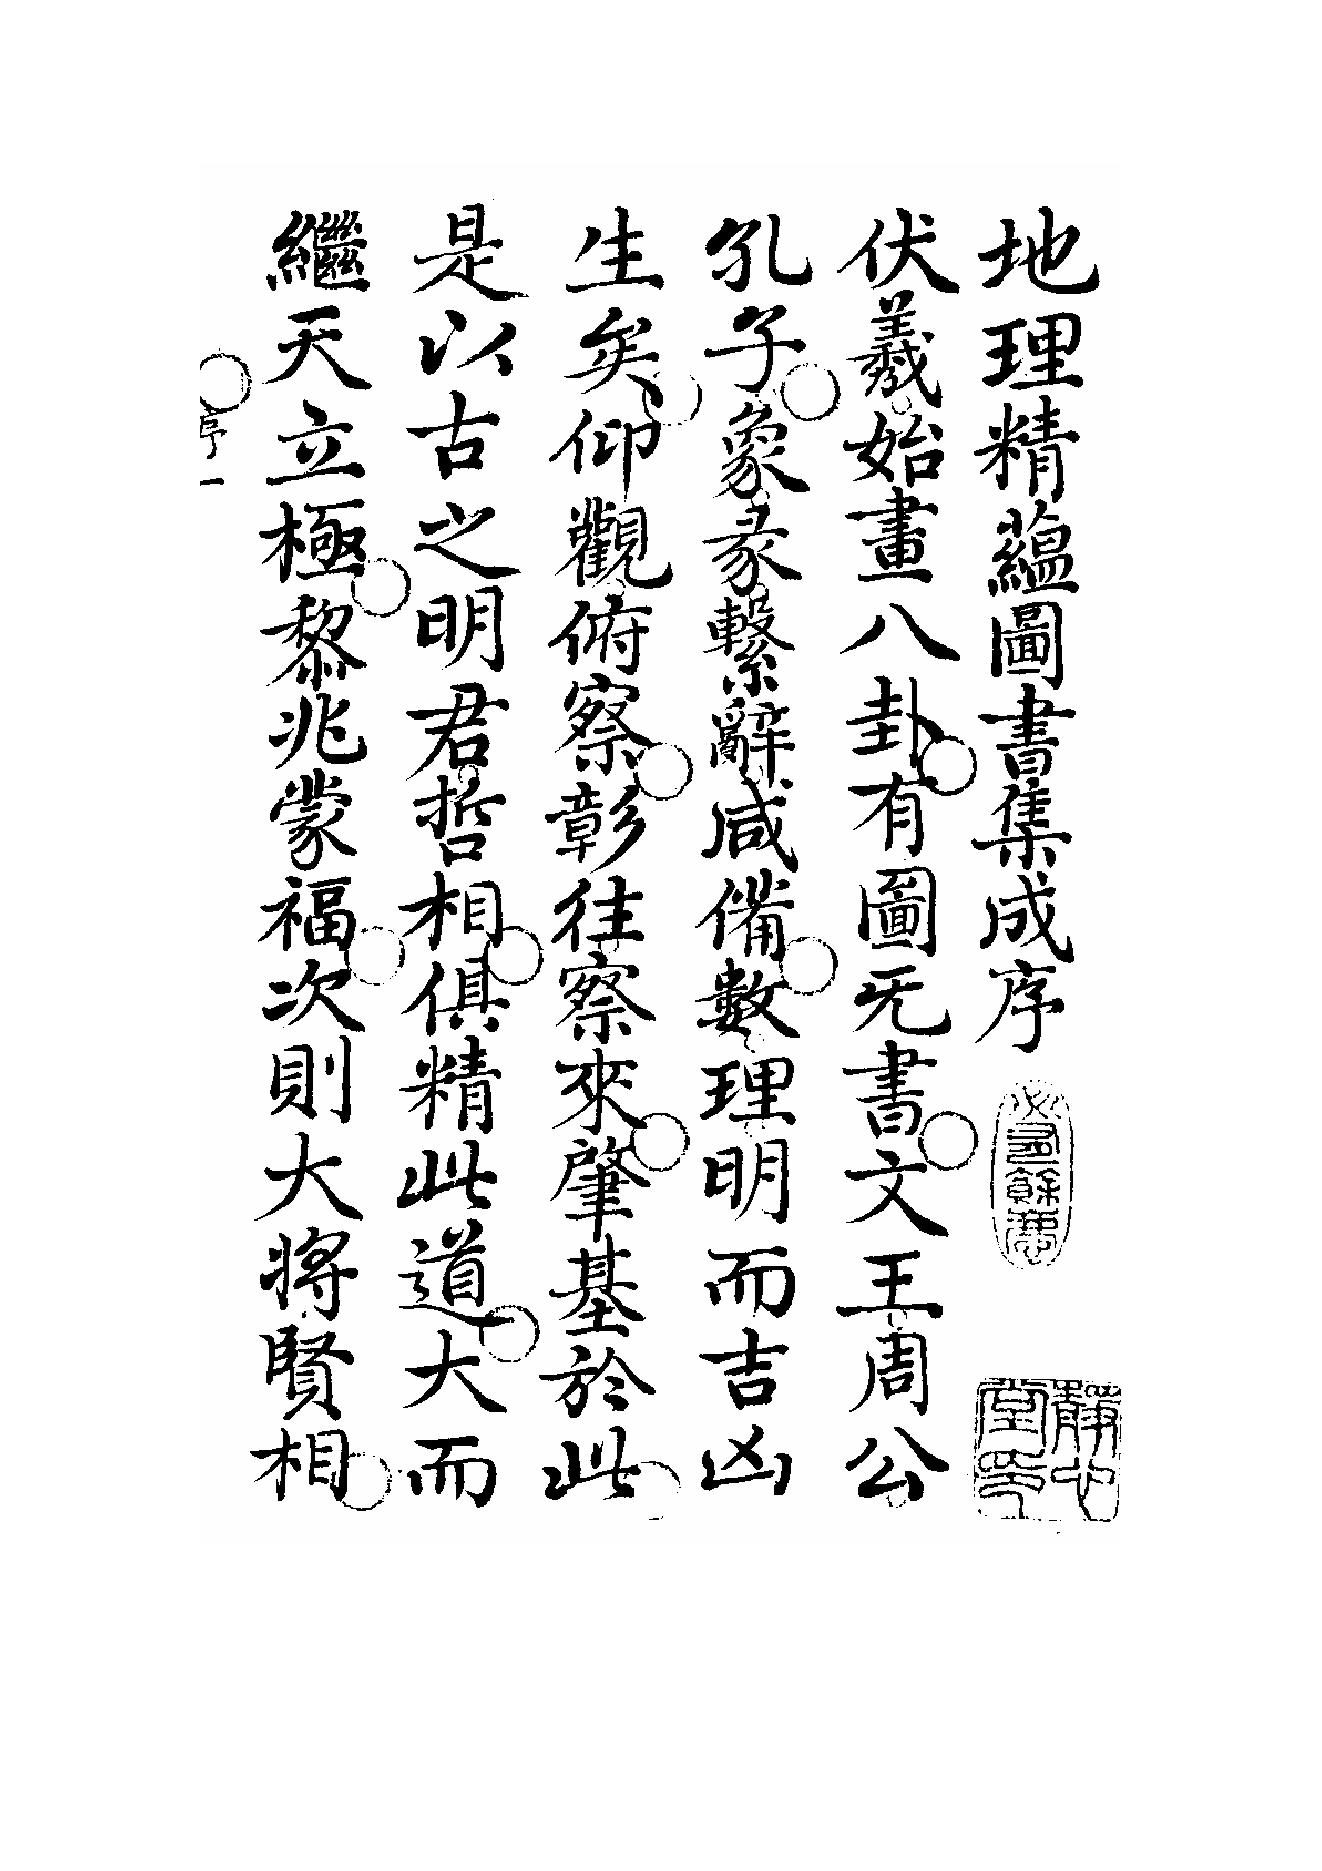 地理精蘊圖書集成序
伏羲始畫八卦有圖无書文王周公
孔子象彖繫辭咸備數理明而吉凶
生矣仰觀俯察彰往察來肇基於此
是以古之明君哲相俱精此道大而
繼天立極黎兆蒙福次則大將賢相
序一